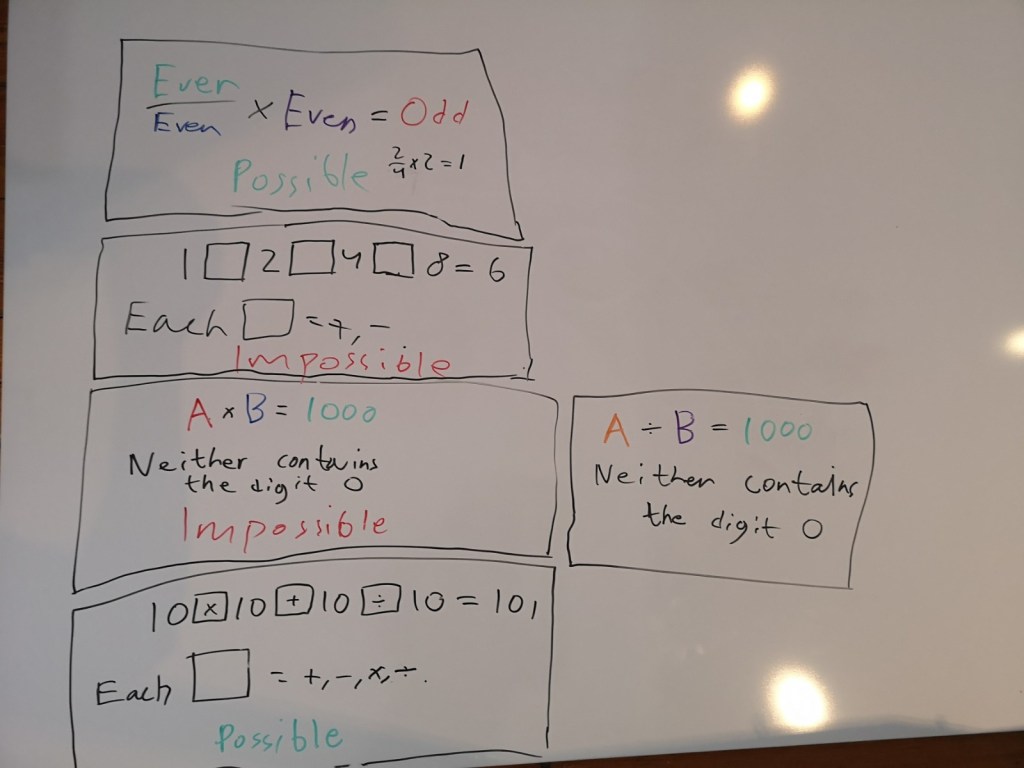 Even
Even × Even = Odd
Possible 2/4 × 2 = 1
1 □ 2 □ 4 □ 8 = 6
Each □ = +, -
Impossible
A × B = 1000
Neither contains
the digit 0
Impossible
A ÷ B = 1000
Neither contains
the digit 0
10 × 10 + 10 ÷ 10 = 101
Each □ = +, -, ×, ÷.
Possible